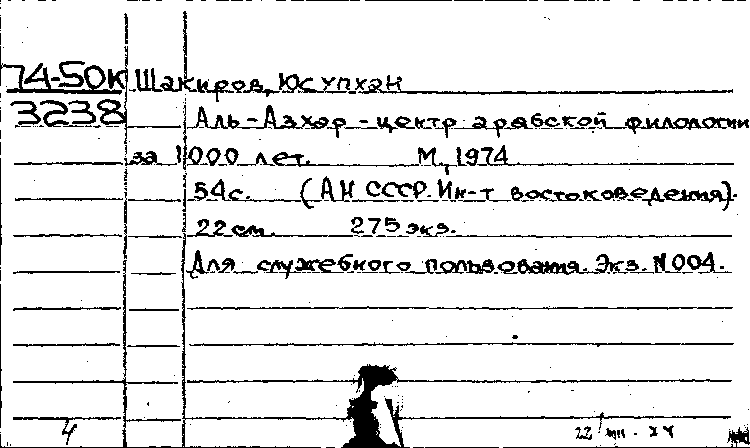 74-50к Шакиров, Юсупхан
3238 Аль-Азхар - центр арабской филологии
за 1000 лет. М., 1974
54 с. (АН СССР. Ин-т востоковедения).
22 см. 275 экз.
Для служебного пользования. Экз. № 004.
4